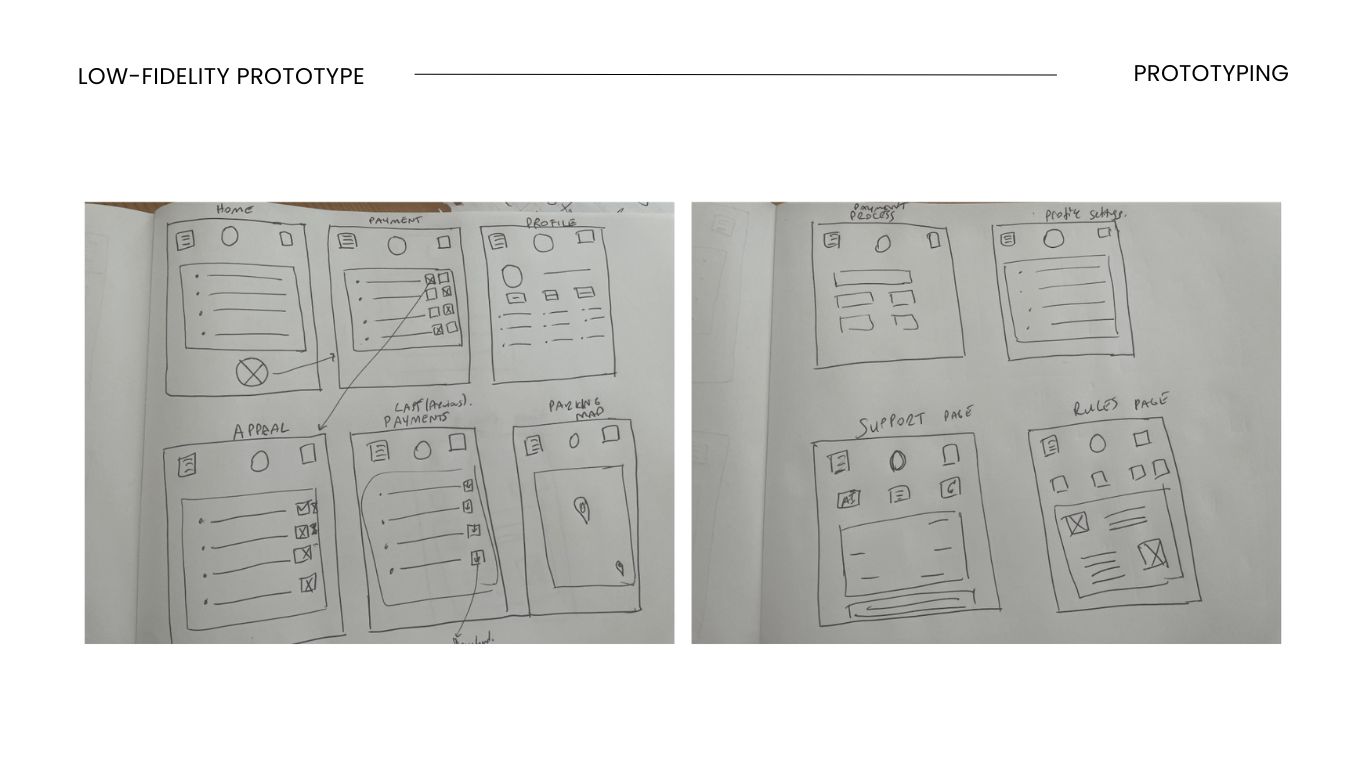 LOW-FIDELITY PROTOTYPE
PROTOTYPING
HOME
PAYMENT
PROFILE
APPEAL
PAYMENTS
PARKING
MAP
PAYMENT
PROCESS
Profile settings.
SUPPORT PAGE
AI
RULES PAGE